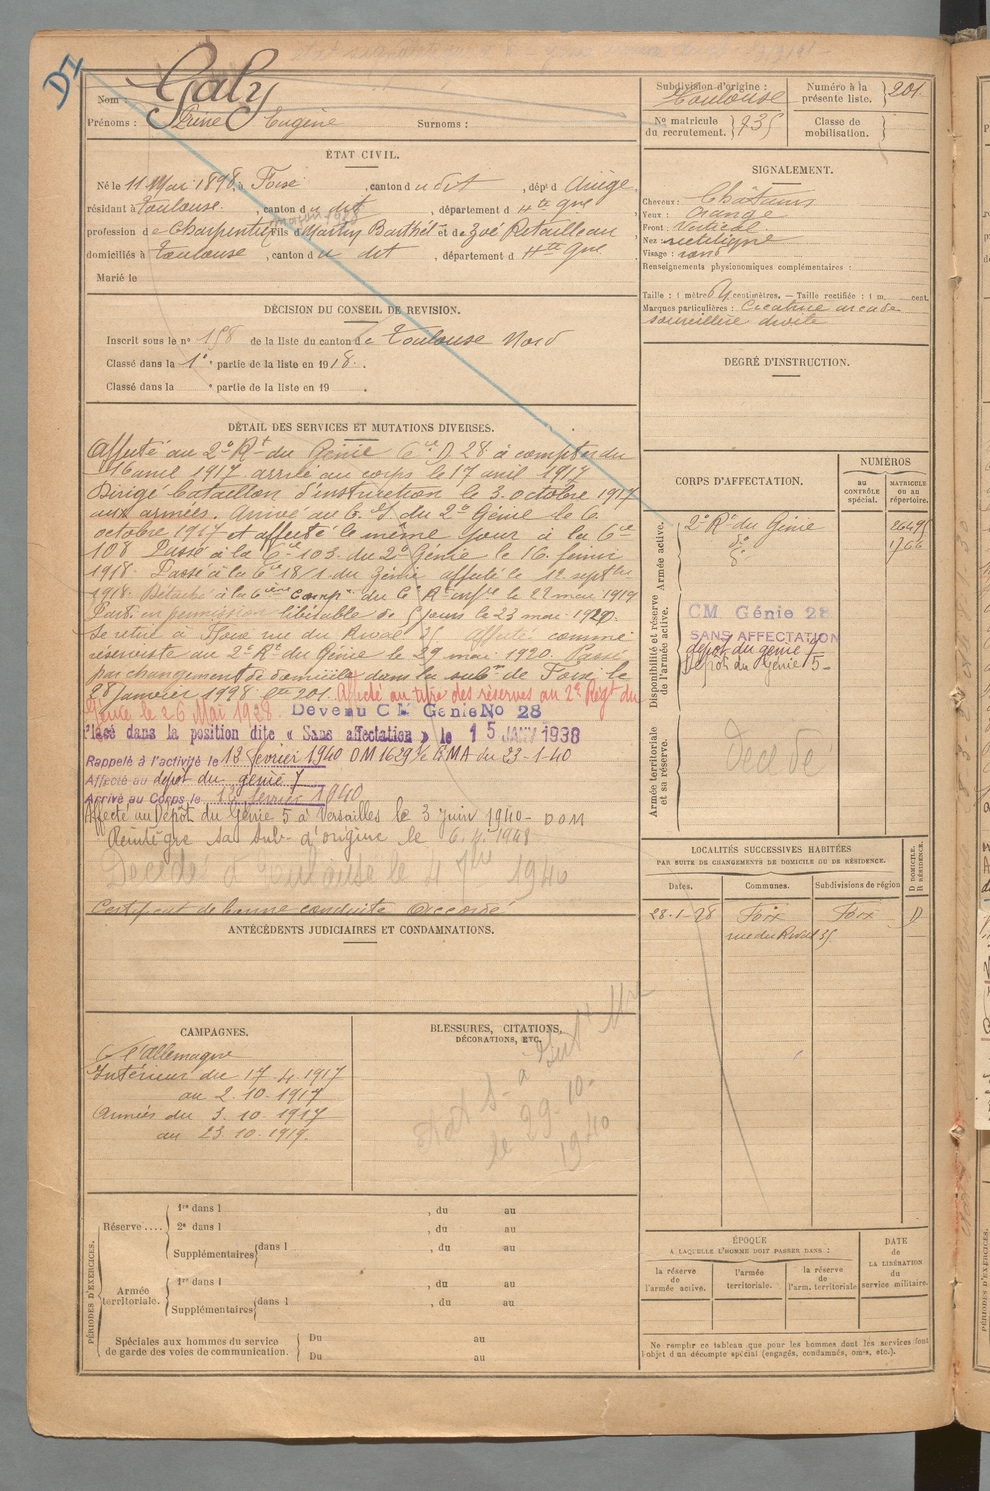 D I
Nom : Galy
Prénoms : Pierre Eugène Surnoms :
Subdivision d'origine : Toulouse
Numéro à la présente liste. } 201
No matricule du recrutement. } 735
Classe de mobilisation. }
ÉTAT CIVIL.
Né le 11 Mai 1898, à Foix, canton du dit, dépt d Ariège
résidant à Toulouse, canton du dit, département d Hte Gne
profession de Charpentier fils d Martin Barthél et de Zoé Retailleau
domiciliés à Toulouse, canton du dit, département d Hte Gne
Marié le
SIGNALEMENT.
Cheveux : Châtains
Yeux : Orange
Front : Vertical
Nez : rectiligne
Visage : rond
Renseignements physionomiques complémentaires :
Taille : 1 mètre centimètres. — Taille rectifiée : 1 m. cent.
Marques particulières : Cicatrice arcade
sourcillière droite
DÉCISION DU CONSEIL DE REVISION.
Inscrit sous le no 158 de la liste du canton de Toulouse Nord
Classé dans la 1e partie de la liste en 1918.
Classé dans la e partie de la liste en 19 .
DEGRÉ D'INSTRUCTION.
DÉTAIL DES SERVICES ET MUTATIONS DIVERSES.
Affecté au 2e Rt du Génie Cie D. 28 à compter du
16 avril 1917 arrivé au corps le 17 avril 1917
Dirigé bataillon d'instruction le 3 octobre 1917
aux armées. Arrivé au du 2e Génie le 6
octobre 1917 et affecté le même jour à la Cie
108 Passé à la Cie 103 du 2e Génie le 16
1918 Passé à la Cie 18/1 du Génie affecté le 1e septbre
1918. Détaché à la le 22 mai 1919
Parti en permission libérable de jours le 23 1920.
Se retire à Foix rue du Rival 35 affecté comme
réserviste au 2e Rt du Génie le 29 mai 1920. Passé
par changement de domicile dans la subon de Foix le
28 Janvier 1928 201. Affecté au titre des réserves au 2e Régt du
Génie le 26 Mai 1928. Devenu C M Génie No 28
Placé dans la position dite « Sans affectation » le 15 JANV 1938
Rappelé à l'activité le 13 février 1940 DM 1629 EMA du 23-1-40
Affecté au dépôt du génie 7
Arrivé au Corps le février 1940
Affecté au Dépôt du Génie 5 à Versailles le 3 juin 1940 - DOM
Réintègre sa sub. d'origine le
Décédé à Toulouse le 4 7bre 1940
Certificat de bonne conduite Accordé
CORPS D'AFFECTATION.
NUMÉROS
au CONTRÔLE spécial.
MATRICULE ou au répertoire.
Armée active.
2e Rt du Génie 26495
do 1766
Disponibilité et réserve de l'armée active.
CM Génie 28
SANS AFFECTATION
dépôt du génie 7
Dépôt du Génie 5
Armée territoriale et sa réserve.
Décédé
LOCALITÉS SUCCESSIVES HABITÉES
PAR SUITE DE CHANGEMENTS DE DOMICILE OU DE RÉSIDENCE.
Dates. Communes. Subdivisions de région D DOMICILE. R RÉSIDENCE.
28-1-28 Foix Foix D
rue du Rival 35
ANTÉCÉDENTS JUDICIAIRES ET CONDAMNATIONS.
CAMPAGNES.
C/ l'Allemagne
Intérieur du 17.4.1917
au 2.10.1917
Armées du 3.10.1917
au 23.10.1919
BLESSURES, CITATIONS,
DÉCORATIONS, ETC.
le 29-10-
1940
PÉRIODES D'EXERCICES.
Réserve .... 1re dans l , du au
2e dans l , du au
Supplémentaires dans l , du au
Armée territoriale. 1re dans l , du au
Supplémentaires dans l , du au
Spéciales aux hommes du service de garde des voies de communication.
Du au
Du au
ÉPOQUE
À LAQUELLE L'HOMME DOIT PASSER DANS :
la réserve de l'armée active.
l'armée territoriale.
la réserve de l'arm. territoriale
DATE de LA LIBÉRATION du service militaire.
Ne remplir ce tableau que pour les hommes dont les services font
l'objet d'un décompte spécial (engagés, condamnés, omis, etc.).